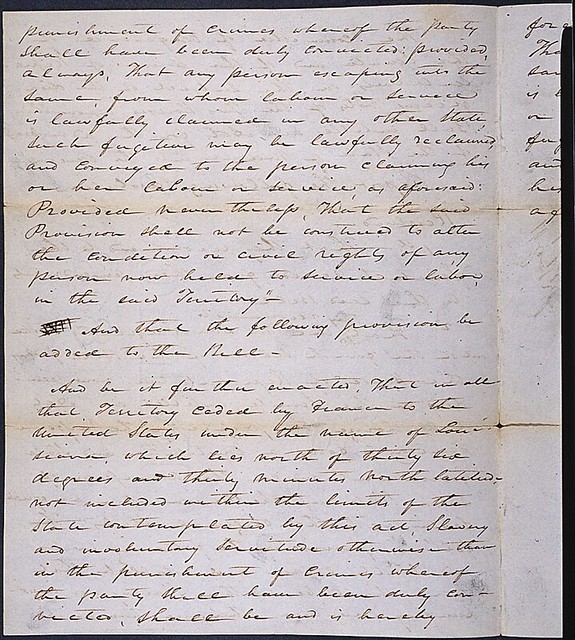 punishment of Crimes, whereof the party
shall have been duly convicted: provided,
always, That any person escaping into the
same, from whom labour or service
is lawfully claimed in any other State,
such fugitive may be lawfully reclaimed
and conveyed to the person claiming his
or her labour or service, as aforesaid:
Provided nevertheless, That the said
Provision shall not be construed to alter
the condition or civil rights of any
person now held to service or labor,
in the said Territory"—
And that the following provision be
added to the Bill—
And be it further enacted, That in all
that Territory ceded by France to the
United States under the name of Lou
isiana, which lies north of thirty six
degrees and thirty minutes North latitude
not included within the limits of the
State contemplated by this act, Slavery
and involuntary servitude otherwise than
in the punishment of Crimes whereof
the party shall have been duly con-
victed, shall be and is hereby
for
or
Tha
sam
is l
or
fug
and
her
af